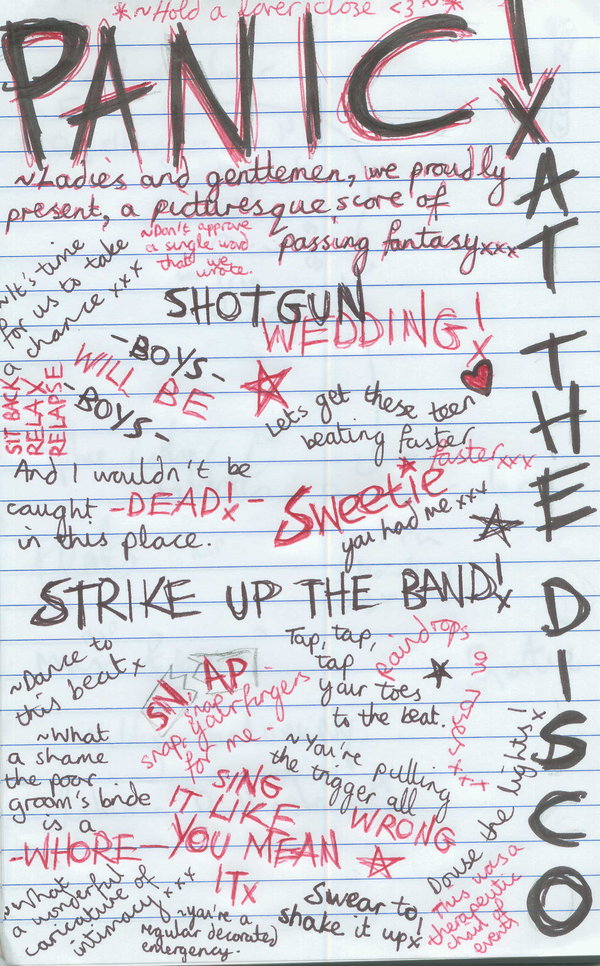 *~Hold a lover close <3~*
PANIC! x
AT THE DISCO
~Ladies and genttemen, we proudly
present, a picturesque score of
passing fantasy xxx
~Don't approve
a single word
that we
wrote.
~It's time
for us to take
a chance xxx
SHOTGUN
WEDDING! x
-BOYS-
WILL BE
-BOYS-
SIT BACK
RELAX
RELAPSE
Lets get these teen
beating faster
faster xxx
And I wouldn't be
caught -DEAD! x-
in this place.
Sweetie
you had me xxx
STRIKE UP THE BAND! x
~Dance to
this beat x
SN, AP
snap, snap
snap, your fingers
for me -
Tap, tap,
tap
your toes
to the beat.
raindrops
on roses xxx
~What
a shame
the poor
groom's bride
is a
-WHORE-
~You're pulling
the trigger all
WRONG
SING
IT LIKE
YOU MEAN
IT x
Douse the lights! x
~What
a wonderful
caricature of
intimacy xxx
~You're a
regular decorated
emergency.
Swear to
shake it up! x
This was a
therapeutic
chain of
events